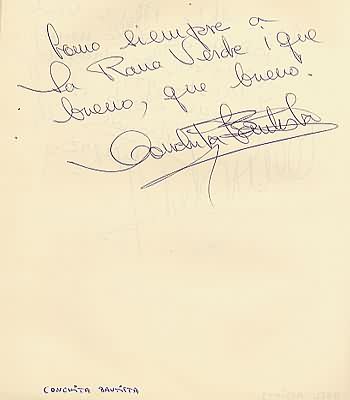 Como siempre a
La Rana Verde ¡que
bueno, que bueno.
Conchita Bautista
CONCHITA BAUTISTA